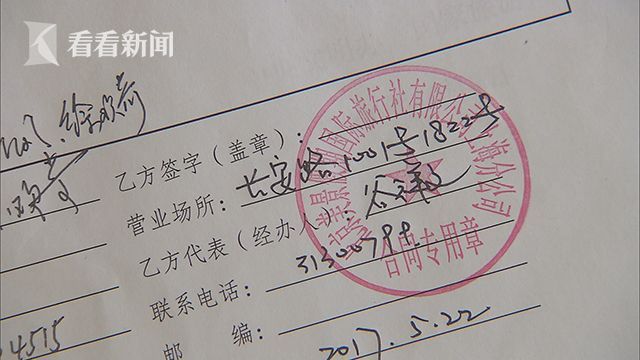 看看新闻
乙方签字（盖章）：
营业场所：长安路1001号1822号
乙方代表（经办人）：
联系电话：31300799
邮 编：
2017.5.22
4515
国际旅行社有限公司上海分公司
合同专用章